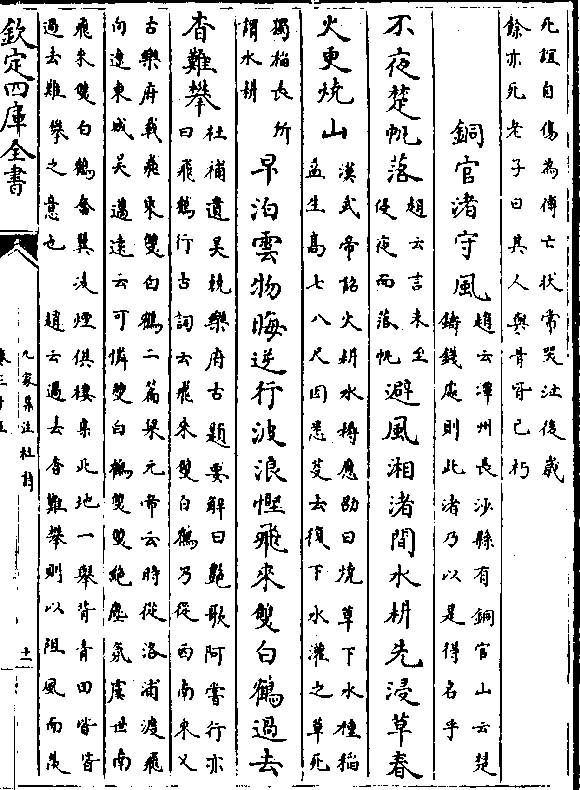 死誼自傷為傅亡狀常哭泣後歲
餘亦死老子曰其人與骨皆已朽
銅官渚守風
趙云潭州長沙縣有銅官山云楚
鑄錢處則此渚乃以是得名乎
不夜楚帆落
趙云言未至
侵夜而落帆
避風湘渚間水耕先浸草春
火更燒山
漢武帝詔火耕水耨應劭曰燒草下水種稻
孟生高七八尺因悉芟去復下水灌之草死
獨稻長所
謂水耕
早泊雲物晦逆行波浪慳飛來雙白鶴過去
杳難攀
杜補遺吳兢樂府古題要解曰艶歌阿嘗行亦
曰飛鶴行古詞云飛來雙白鶴乃從西南來又
古樂府載飛來雙白鶴二篇梁元帝云時從洛浦渡飛
向遼東成吳邁遠云可憐雙白鶴雙雙絕塵氛虞世南
飛來雙白鶴奮翼凌煙俱棲集此地一舉背青田皆皆
過去難攀之意也 趙云過去杳難攀則以阻風而羨
欽定四庫全書
九家集注杜詩
十一